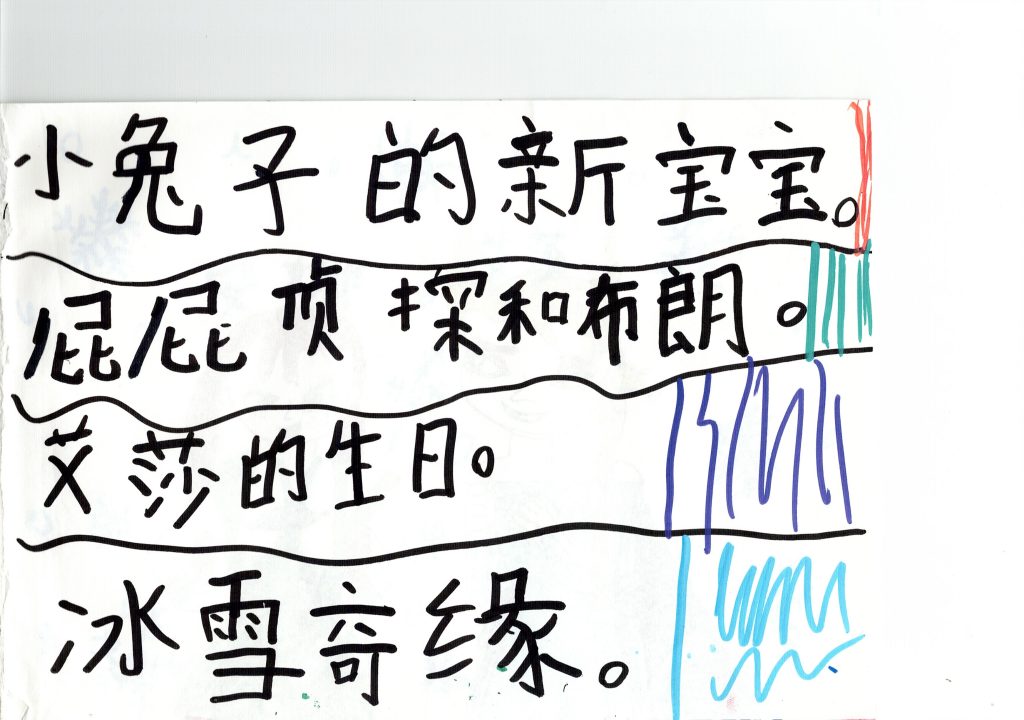 小兔子的新宝宝。
屁屁侦探和布朗。
艾莎的生日。
冰雪奇缘。